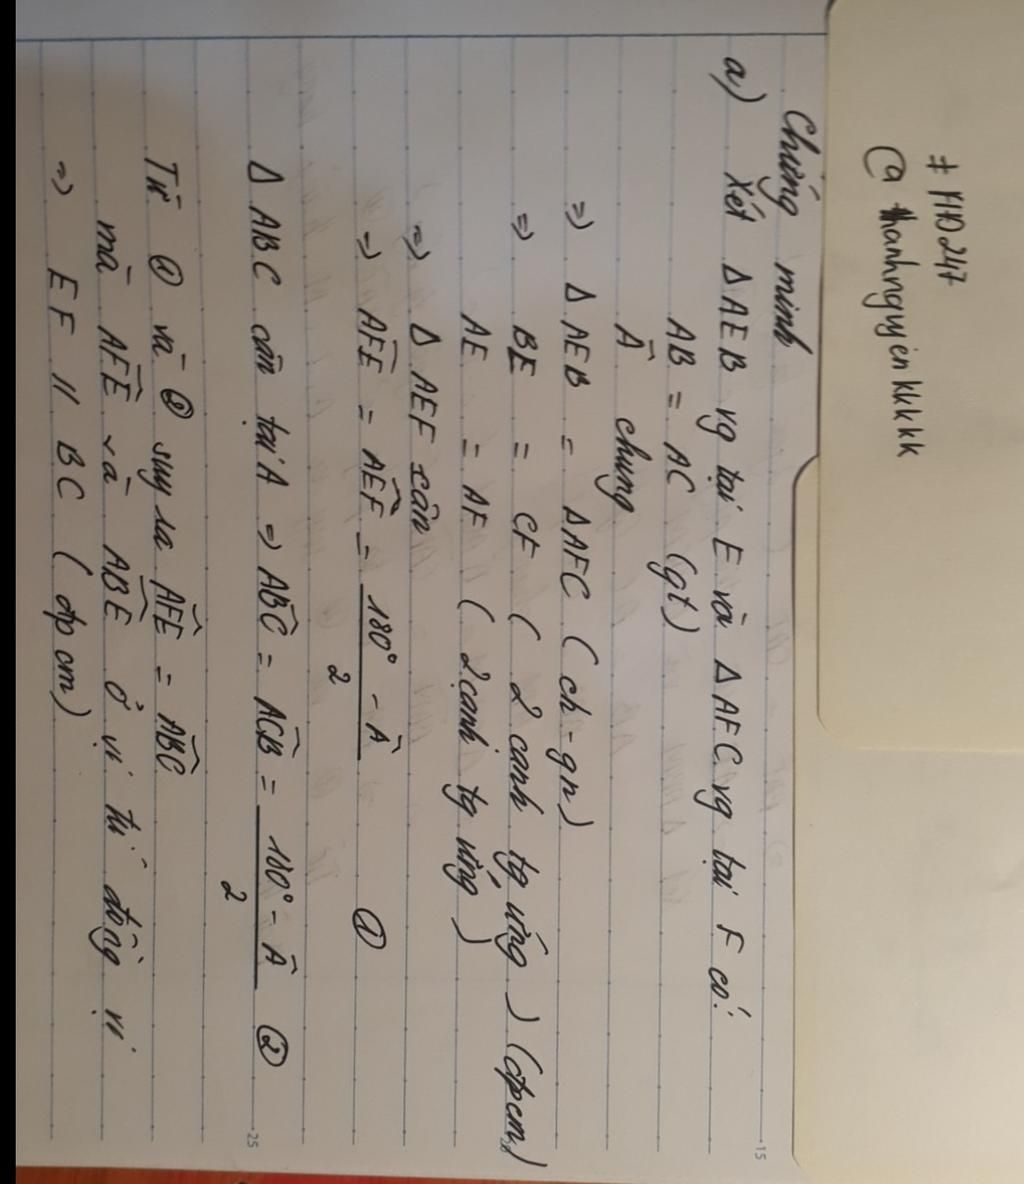 # HD247
@ thanhnguyenkkkkk
Chứng minh
a) Xét Δ AEB vg tại E và Δ AFC vg tại F có:
AB = AC (gt)
Â chung
=> Δ AEB = Δ AFC ( ch - gn )
=> BE = CF ( 2 cạnh tg ứng ) (đpcm)
AE = AF ( 2 cạnh tg ứng )
=> Δ AEF cân
=> AFE = AEF = 180° - Â / 2 ①
Δ ABC cân tại A => ABC = ACB = 180° - Â / 2 ②
Từ ① và ② suy ra AFE = ABC
mà AFE và ABE ở vị trí đồng vị
=> EF // BC ( đpcm )
15
25